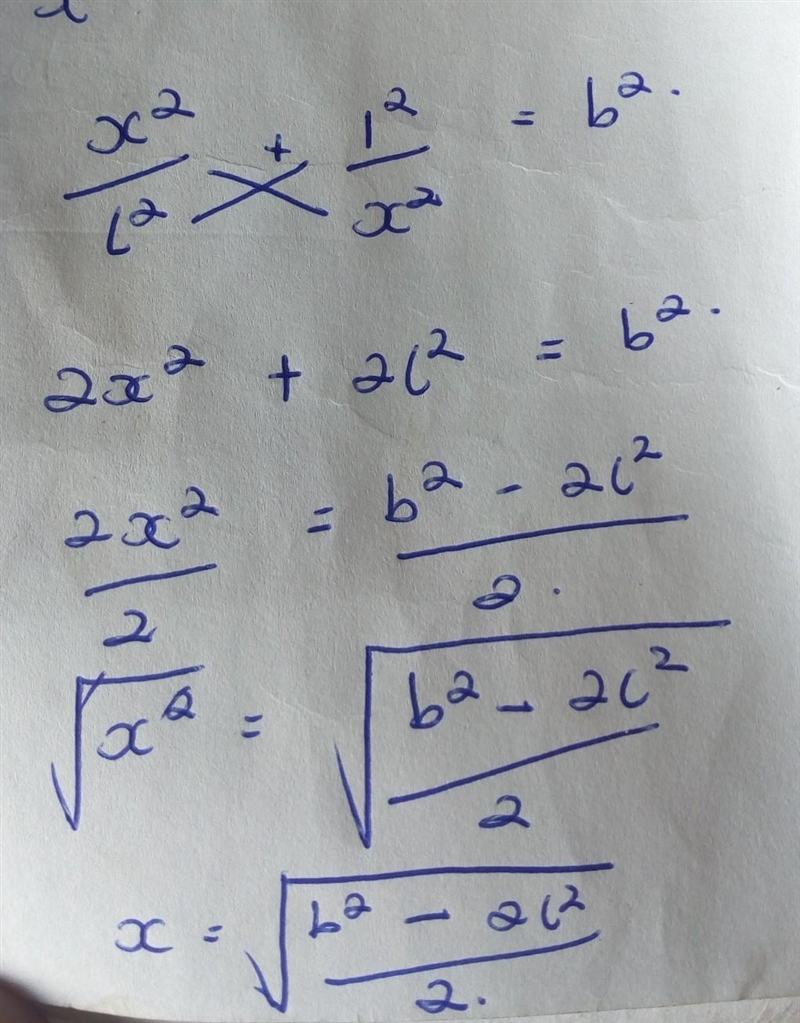 x² / l² + l² / x² = b².
2x² + 2l² = b².
2x² / 2 = b² - 2l² / 2.
√x² = √(b² - 2l² / 2)
x = √(b² - 2l² / 2.)